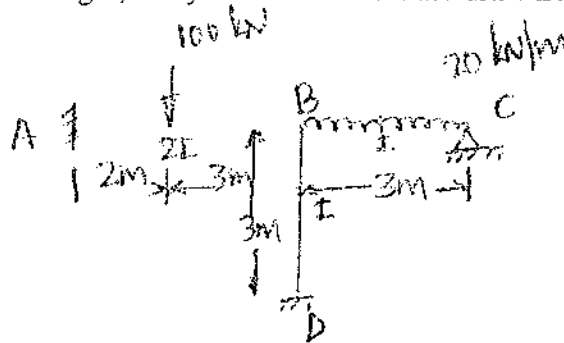 100 kN
20 kN/m
A
B
C
2I
I
2m
3m
3m
3m
I
D